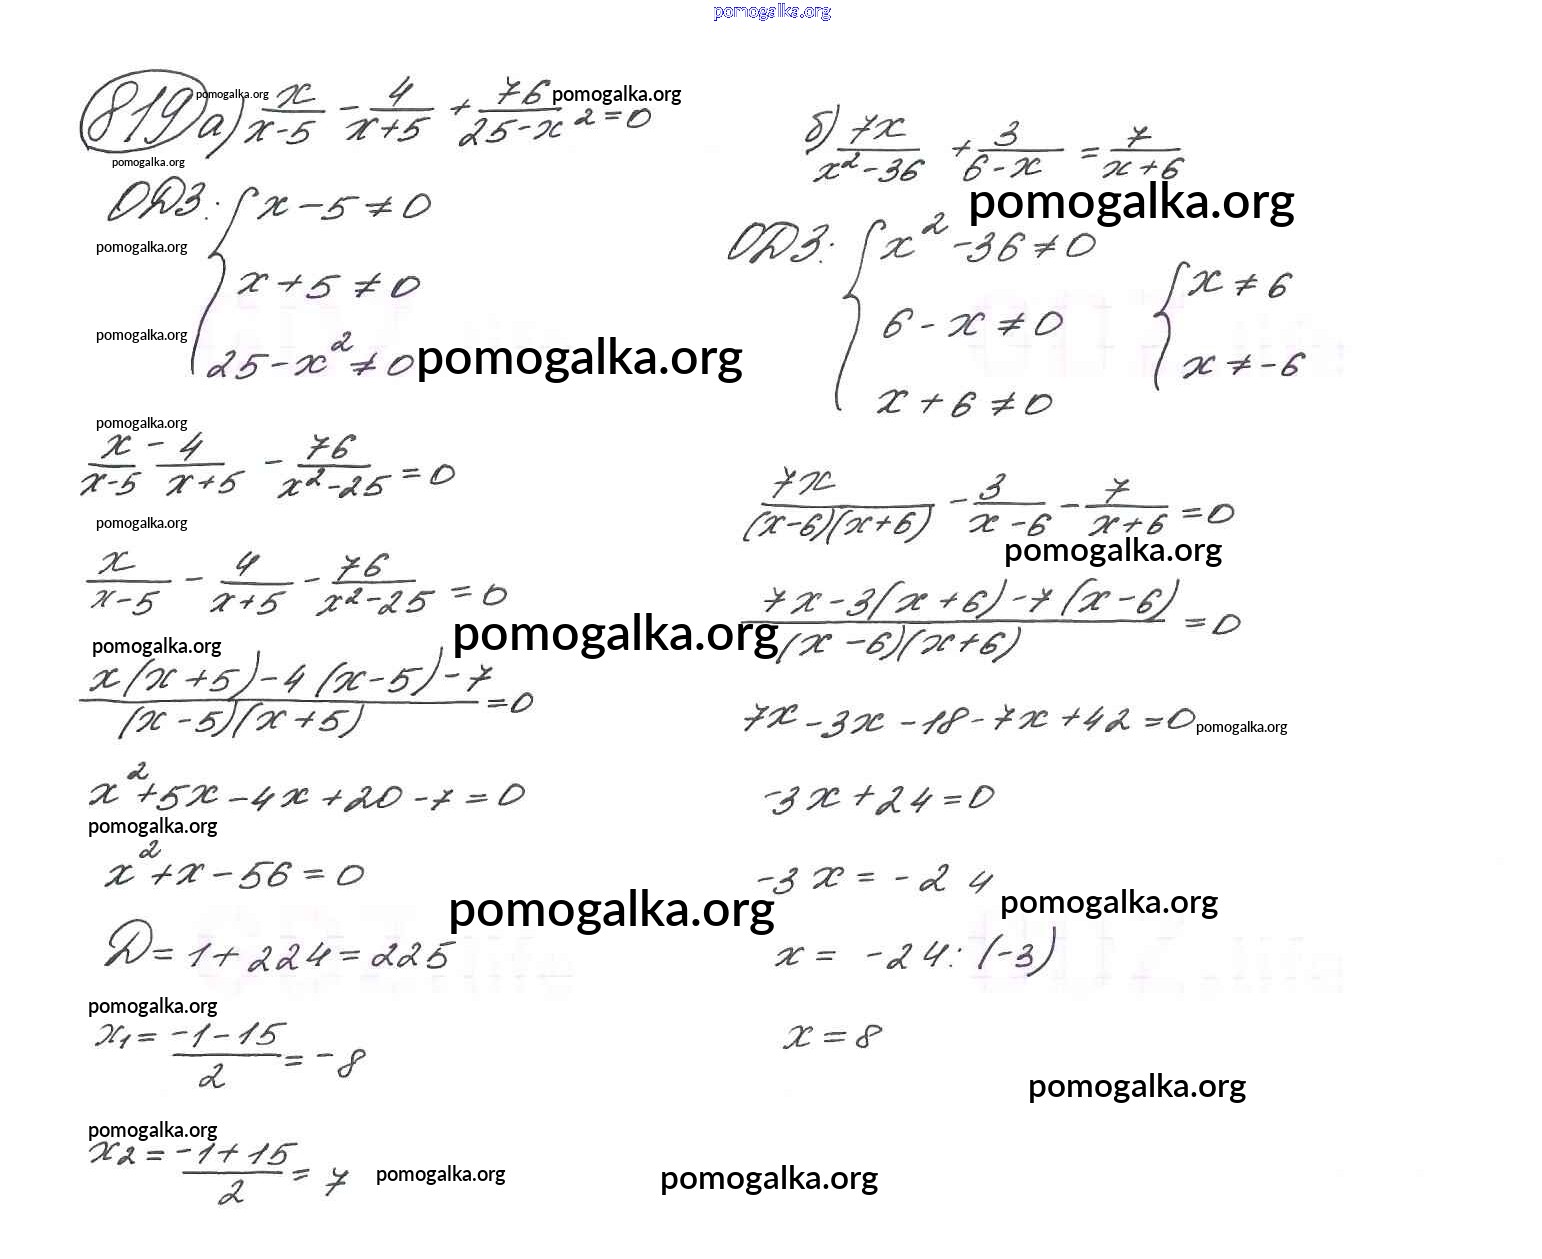 pomogalka.org
819 а) x/(x-5) - 4/(x+5) + 76/(25-x²) = 0
pomogalka.org
pomogalka.org
pomogalka.org
ОДЗ: { x - 5 ≠ 0
pomogalka.org
x + 5 ≠ 0
pomogalka.org
25 - x² ≠ 0
pomogalka.org
pomogalka.org
x/(x-5) - 4/(x+5) - 76/(x²-25) = 0
pomogalka.org
x/(x-5) - 4/(x+5) - 76/(x²-25) = 0
pomogalka.org
pomogalka.org
(x(x+5) - 4(x-5) - 7)/((x-5)(x+5)) = 0
x² + 5x - 4x + 20 - 7 = 0
pomogalka.org
x² + x - 56 = 0
pomogalka.org
D = 1 + 224 = 225
pomogalka.org
x₁ = (-1-15)/2 = -8
pomogalka.org
x₂ = (-1+15)/2 = 7
pomogalka.org
б) 7x/(x²-36) + 3/(6-x) = 7/(x+6)
pomogalka.org
ОДЗ: { x² - 36 ≠ 0
6 - x ≠ 0
x + 6 ≠ 0
{ x ≠ 6
x ≠ -6
7x/((x-6)(x+6)) - 3/(x-6) - 7/(x+6) = 0
pomogalka.org
(7x - 3(x+6) - 7(x-6))/((x-6)(x+6)) = 0
7x - 3x - 18 - 7x + 42 = 0
pomogalka.org
-3x + 24 = 0
-3x = -24
pomogalka.org
x = -24 : (-3)
x = 8
pomogalka.org
pomogalka.org